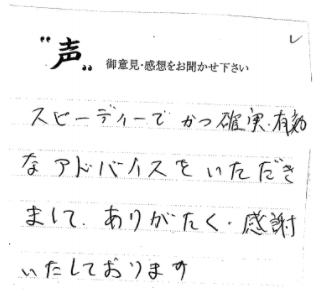 "声"
御意見・感想をお聞かせ下さい
スピーディーで かつ確実・有効
なアドバイスをいただき
まして、ありがたく・感謝
いたしております